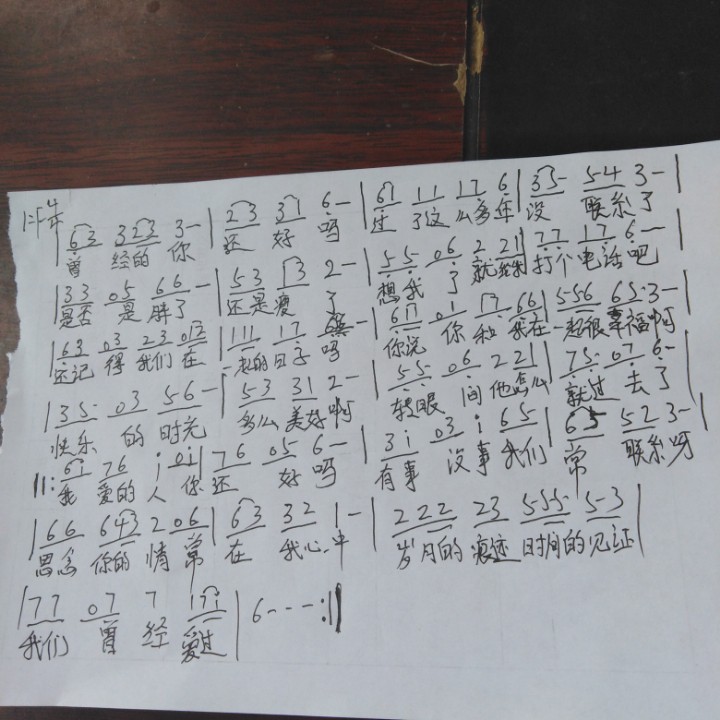 1=F 4/4
|63 323 3-|23 31 6-|61 11 17 6|35 54 3-|
曾 经的 你 还 好 吗 过 了这 么多年 没 联系了
|33 05 66-|53 13 2-|55 06 2 21|77 17 6-|
是否 是 胖了 还是瘦 了 想我 了 就给我 打个电话吧
|63 03 23 012|111 17 6-|61 01 17 66|556 65·3-|
还记 得 我们 在 一起的日子 吗 你说 你 和 我在 一起很幸福啊
|35 03 56-|53 31 2-|55 06 2 21|75 07 6-|
快乐 的 时光 多么 美好啊 转眼 间 他怎么 就过 去 了
||:61 76 i 0i|76 05 6-|3i 03 i 65|65 52 3-|
我 爱的 人 你 还 好 吗 有事 没事 我们 常 联系呀
|66 643 2 06|63 32 1-|222 23 555 5-3|
思念 你的 情 常 在 我心中 岁月的 痕迹 时间的 见证
|77 07 7 171|6---:||
我们 曾 经 爱过